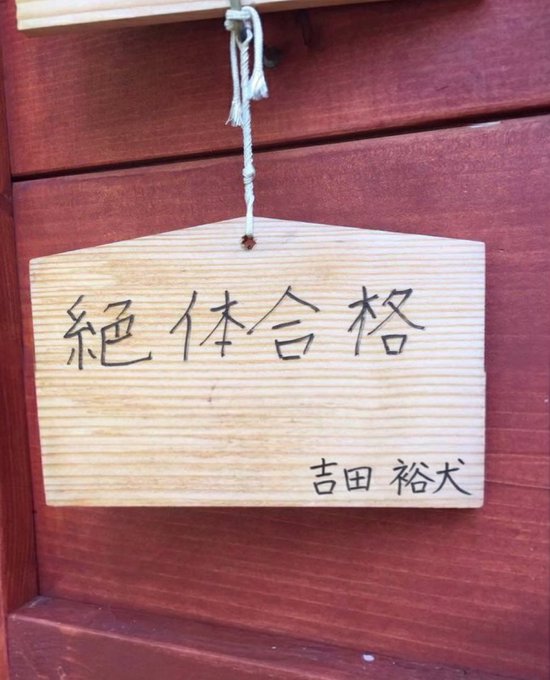 絶体合格
吉田 裕犬